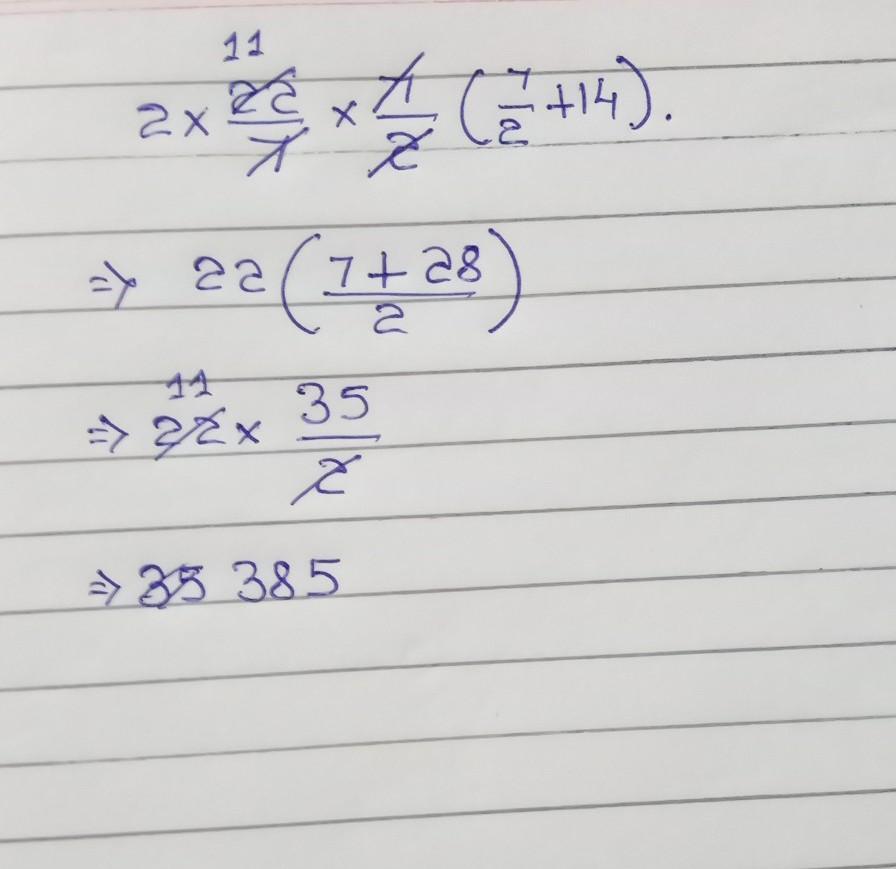 11
2 × 22/7 × 7/2 (7/2 + 14).
⇒ 22 (7 + 28 / 2)
11
⇒ 22 × 35/2
⇒ 35 385